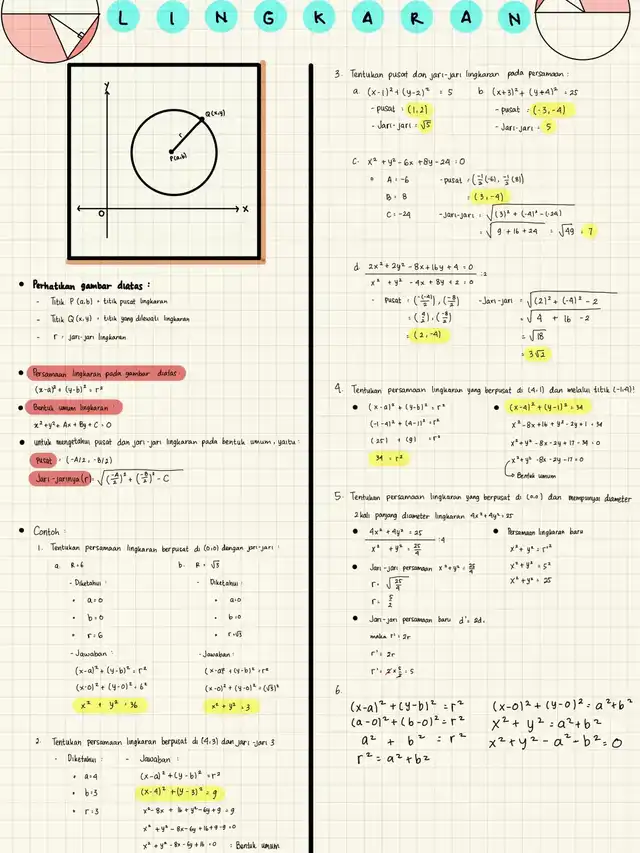 LINGKARAN
Y
Q(x,y)
r
P(a,b)
O
X
• Perhatikan gambar diatas :
- Titik P (a,b) = titik pusat lingkaran
- Titik Q(x,y) = titik yang dilewati lingkaran
- r = jari-jari lingkaran
• Persamaan lingkaran pada gambar diatas:
(x-a)² + (y-b)² = r²
• Bentuk umum lingkaran :
x²+y²+ Ax + By + C = 0
• untuk mengetahui pusat dan jari-jari lingkaran pada bentuk umum, yaitu:
Pusat = (-A/2, -B/2)
Jari-jarinya (r) = √(-A/2)² + (-B/2)² - C
• Contoh :
1. Tentukan persamaan lingkaran berpusat di (0,0) dengan jari-jari :
a. R=6
- Diketahui :
• a=0
• b=0
• r=6
- Jawaban :
(x-a)² + (y-b)² = r²
(x-0)² + (y-0)² = 6²
x² + y² = 36
b. R = √3
- Diketahui :
• a=0
• b=0
• r=√3
- Jawaban :
(x-a)² + (y-b)² = r²
(x-0)² + (y-0)² = (√3)²
x² + y² = 3
2. Tentukan persamaan lingkaran berpusat di (4,3) dan jari-jari 3
- Diketahui :
• a=4
• b=3
• r=3
- Jawaban :
(x-a)² + (y-b)² = r²
(x-4)² + (y-3)² = 9
x²-8x + 16 + y²-6y+9 = 9
x² + y² -8x-6y+16+9-9=0
x² + y² -8x-6y +16 = 0 = Bentuk umum
3. Tentukan pusat dan jari-jari lingkaran pada persamaan :
a. (x-1)² + (y-2)² = 5
- pusat = (1,2)
- Jari-jari = √5
b. (x+3)² + (y+4)² = 25
- pusat = (-3,-4)
- Jari-jari = 5
c. x² + y² -6x +8y-24 = 0
• A = -6
B = 8
C = -24
-pusat = (-1/2(-6), -1/2(8))
= (3,-4)
-jari-jari = √(3)² + (-4)² - (-24)
= √9 + 16 + 24 = √49 = 7
d. 2x² + 2y² - 8x + 16y + 4 = 0 :2
x² + y² - 4x + 8y + 2 = 0
- Pusat = (-(-4)/2), (-8/2)
= (4/2), (-8/2)
= (2,-4)
-Jari-jari = √(2)² + (-4)² - 2
= √4 + 16 - 2
= √18
= 3√2
4. Tentukan persamaan lingkaran yang berpusat di (4,1) dan melalui titik (-1,4)!
• (x-a)² + (y-b)² = r²
(-1-4)² + (4-1)² = r²
(25) + (9) = r²
34 = r²
• (x-4)² + (y-1)² = 34
x² -8x + 16 + y² -2y + 1 = 34
x² + y² -8x -2y + 17 - 34 = 0
x² + y² -8x -2y -17 = 0
Bentuk umum
5. Tentukan persamaan lingkaran yang berpusat di (0,0) dan mempunyai diameter
2 kali panjang diameter lingkaran 4x²+4y²=25
• 4x² + 4y² = 25 :4
x² + y² = 25/4
• Jari-jari persamaan x²+y² = 25/4
r = √25/4
r = 5/2
• Jari-jari persamaan baru d' = 2d.
maka r' = 2r
r' = 2r
r' = 2 x 5/2 = 5
• Persamaan lingkaran baru
x² + y² = r'²
x² + y² = 5²
x² + y² = 25
6.
(x-a)² + (y-b)² = r²
(a-0)² + (b-0)² = r²
a² + b² = r²
r² = a² + b²
(x-0)² + (y-0)² = a² + b²
x² + y² = a² + b²
x² + y² - a² - b² = 0